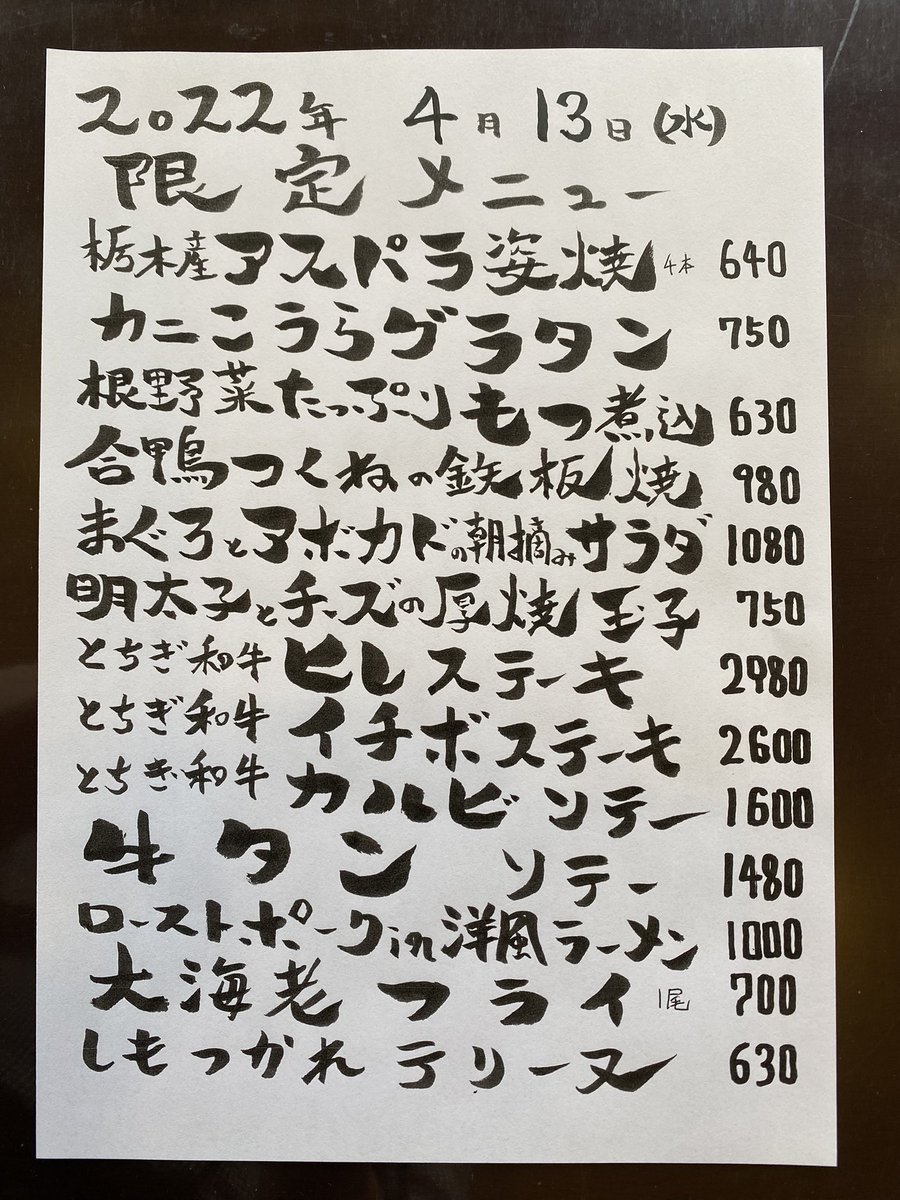 2022年 4月13日(水)
限定メニュー
栃木産アスパラ姿焼 4本 640
カニこうらグラタン 750
根野菜たっぷりもつ煮込 630
合鴨つくねの鉄板焼 980
まぐろとアボカドの朝摘みサラダ 1080
明太子とチーズの厚焼玉子 750
とちぎ和牛 ヒレステーキ 2980
とちぎ和牛 イチボステーキ 2600
とちぎ和牛 カルビソテー 1600
牛タン ソテー 1480
ローストポークin洋風ラーメン 1000
大海老フライ 1尾 700
しもつかれテリーヌ 630